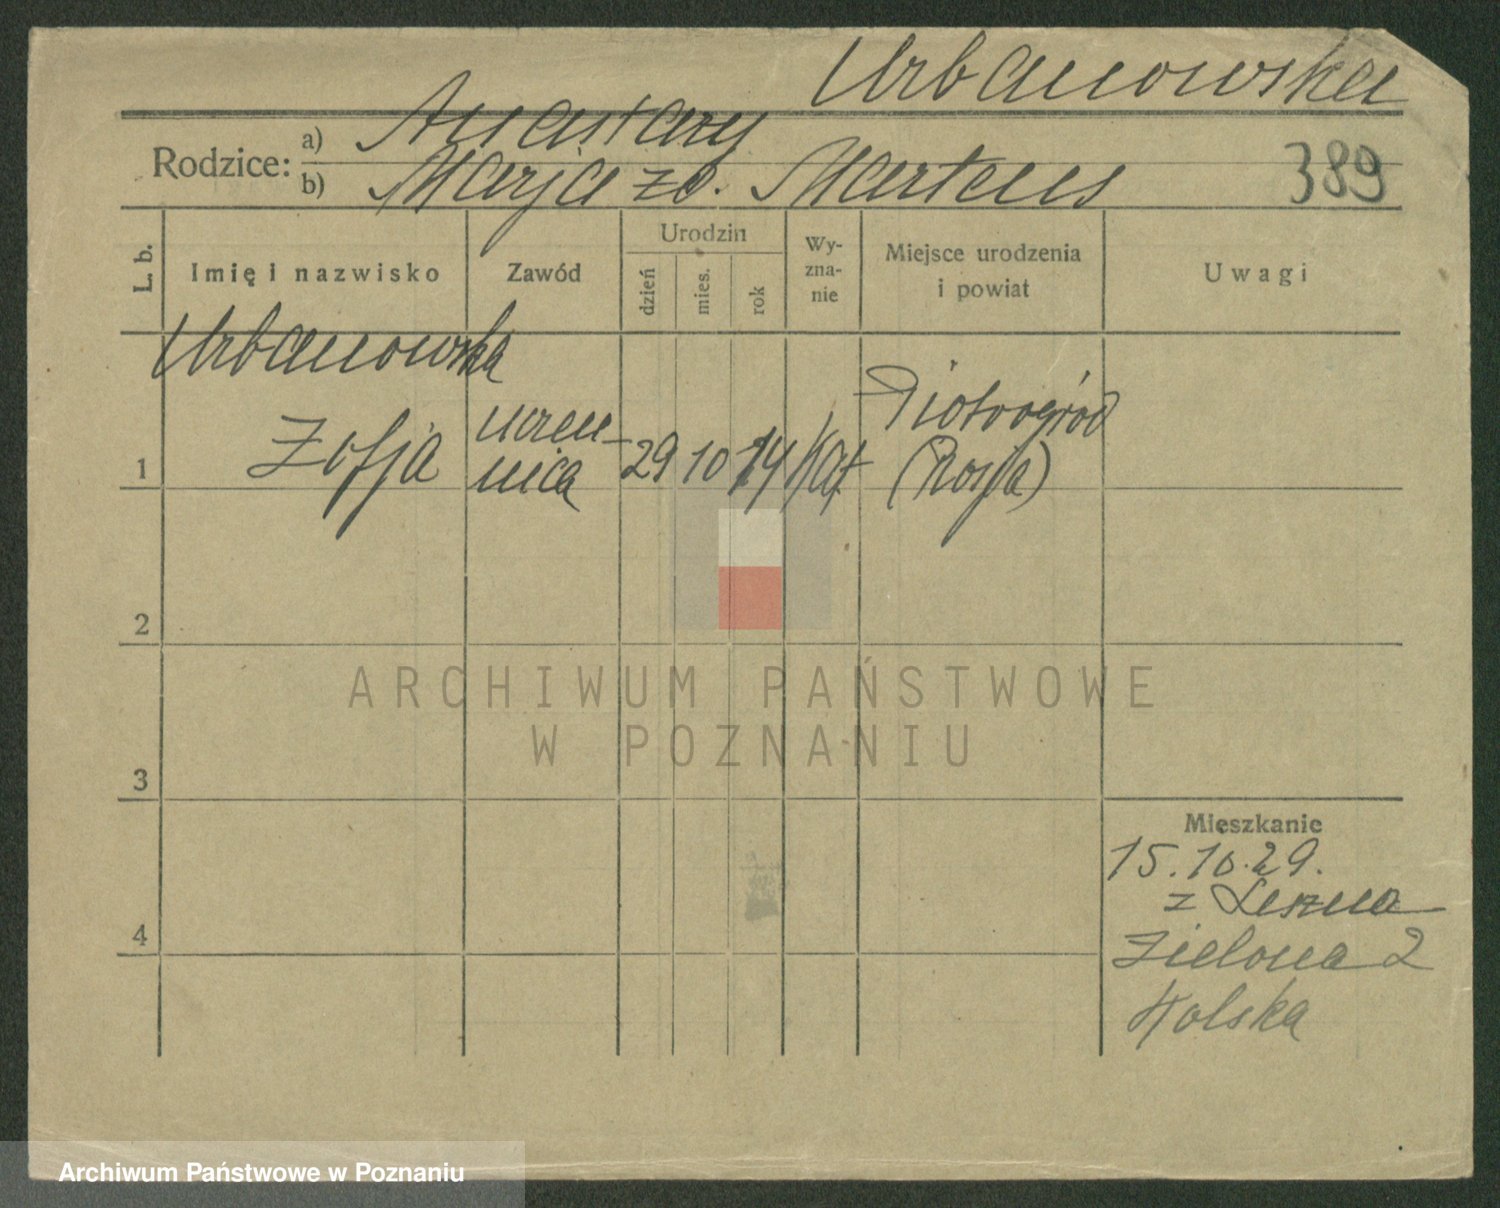 Urbanowska
Rodzice:
a) Anastazy
b) Marja zd. Martens
389
L. b.
Imię i nazwisko
Zawód
Urodzin
dzień
mies.
rok
Wy-
zna-
nie
Miejsce urodzenia
i powiat
Uwagi
Urbanowska
1 Zofja
uczen-
nica
29 10 14 Kat
Piotrogród
(Rosja)
2
3
4
Mieszkanie
15.10.29.
z Leszna
Zielona 2
Polska
ARCHIWUM PAŃSTWOWE
W POZNANIU
Archiwum Państwowe w Poznaniu